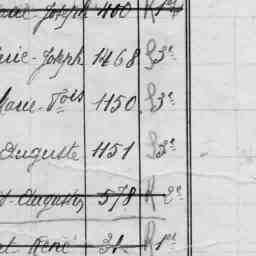 Joseph 400 R 1er
rie-Joseph 1468 S 3e
Marie-Fois 1150 S 3e
Auguste 1151 S 3e
Auguste 578 R 2e
René 31 R 1er